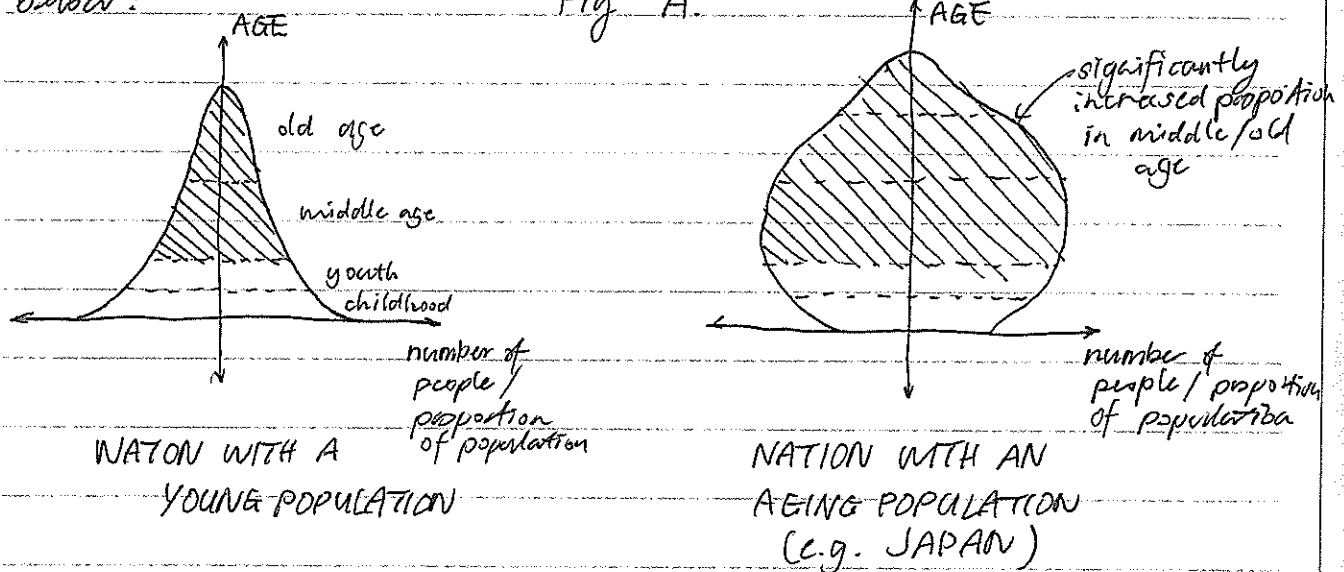 below:
Fig A.
AGE
old age
middle age
youth
childhood
number of
people/
proportion
of population
NATON WITH A
YOUNG POPULATION
AGE
significantly
increased propoition
in middle/old
age
number of
people/ propotion
of population
NATION WITH AN
AEING POPULATION
(e.g. JAPAN)